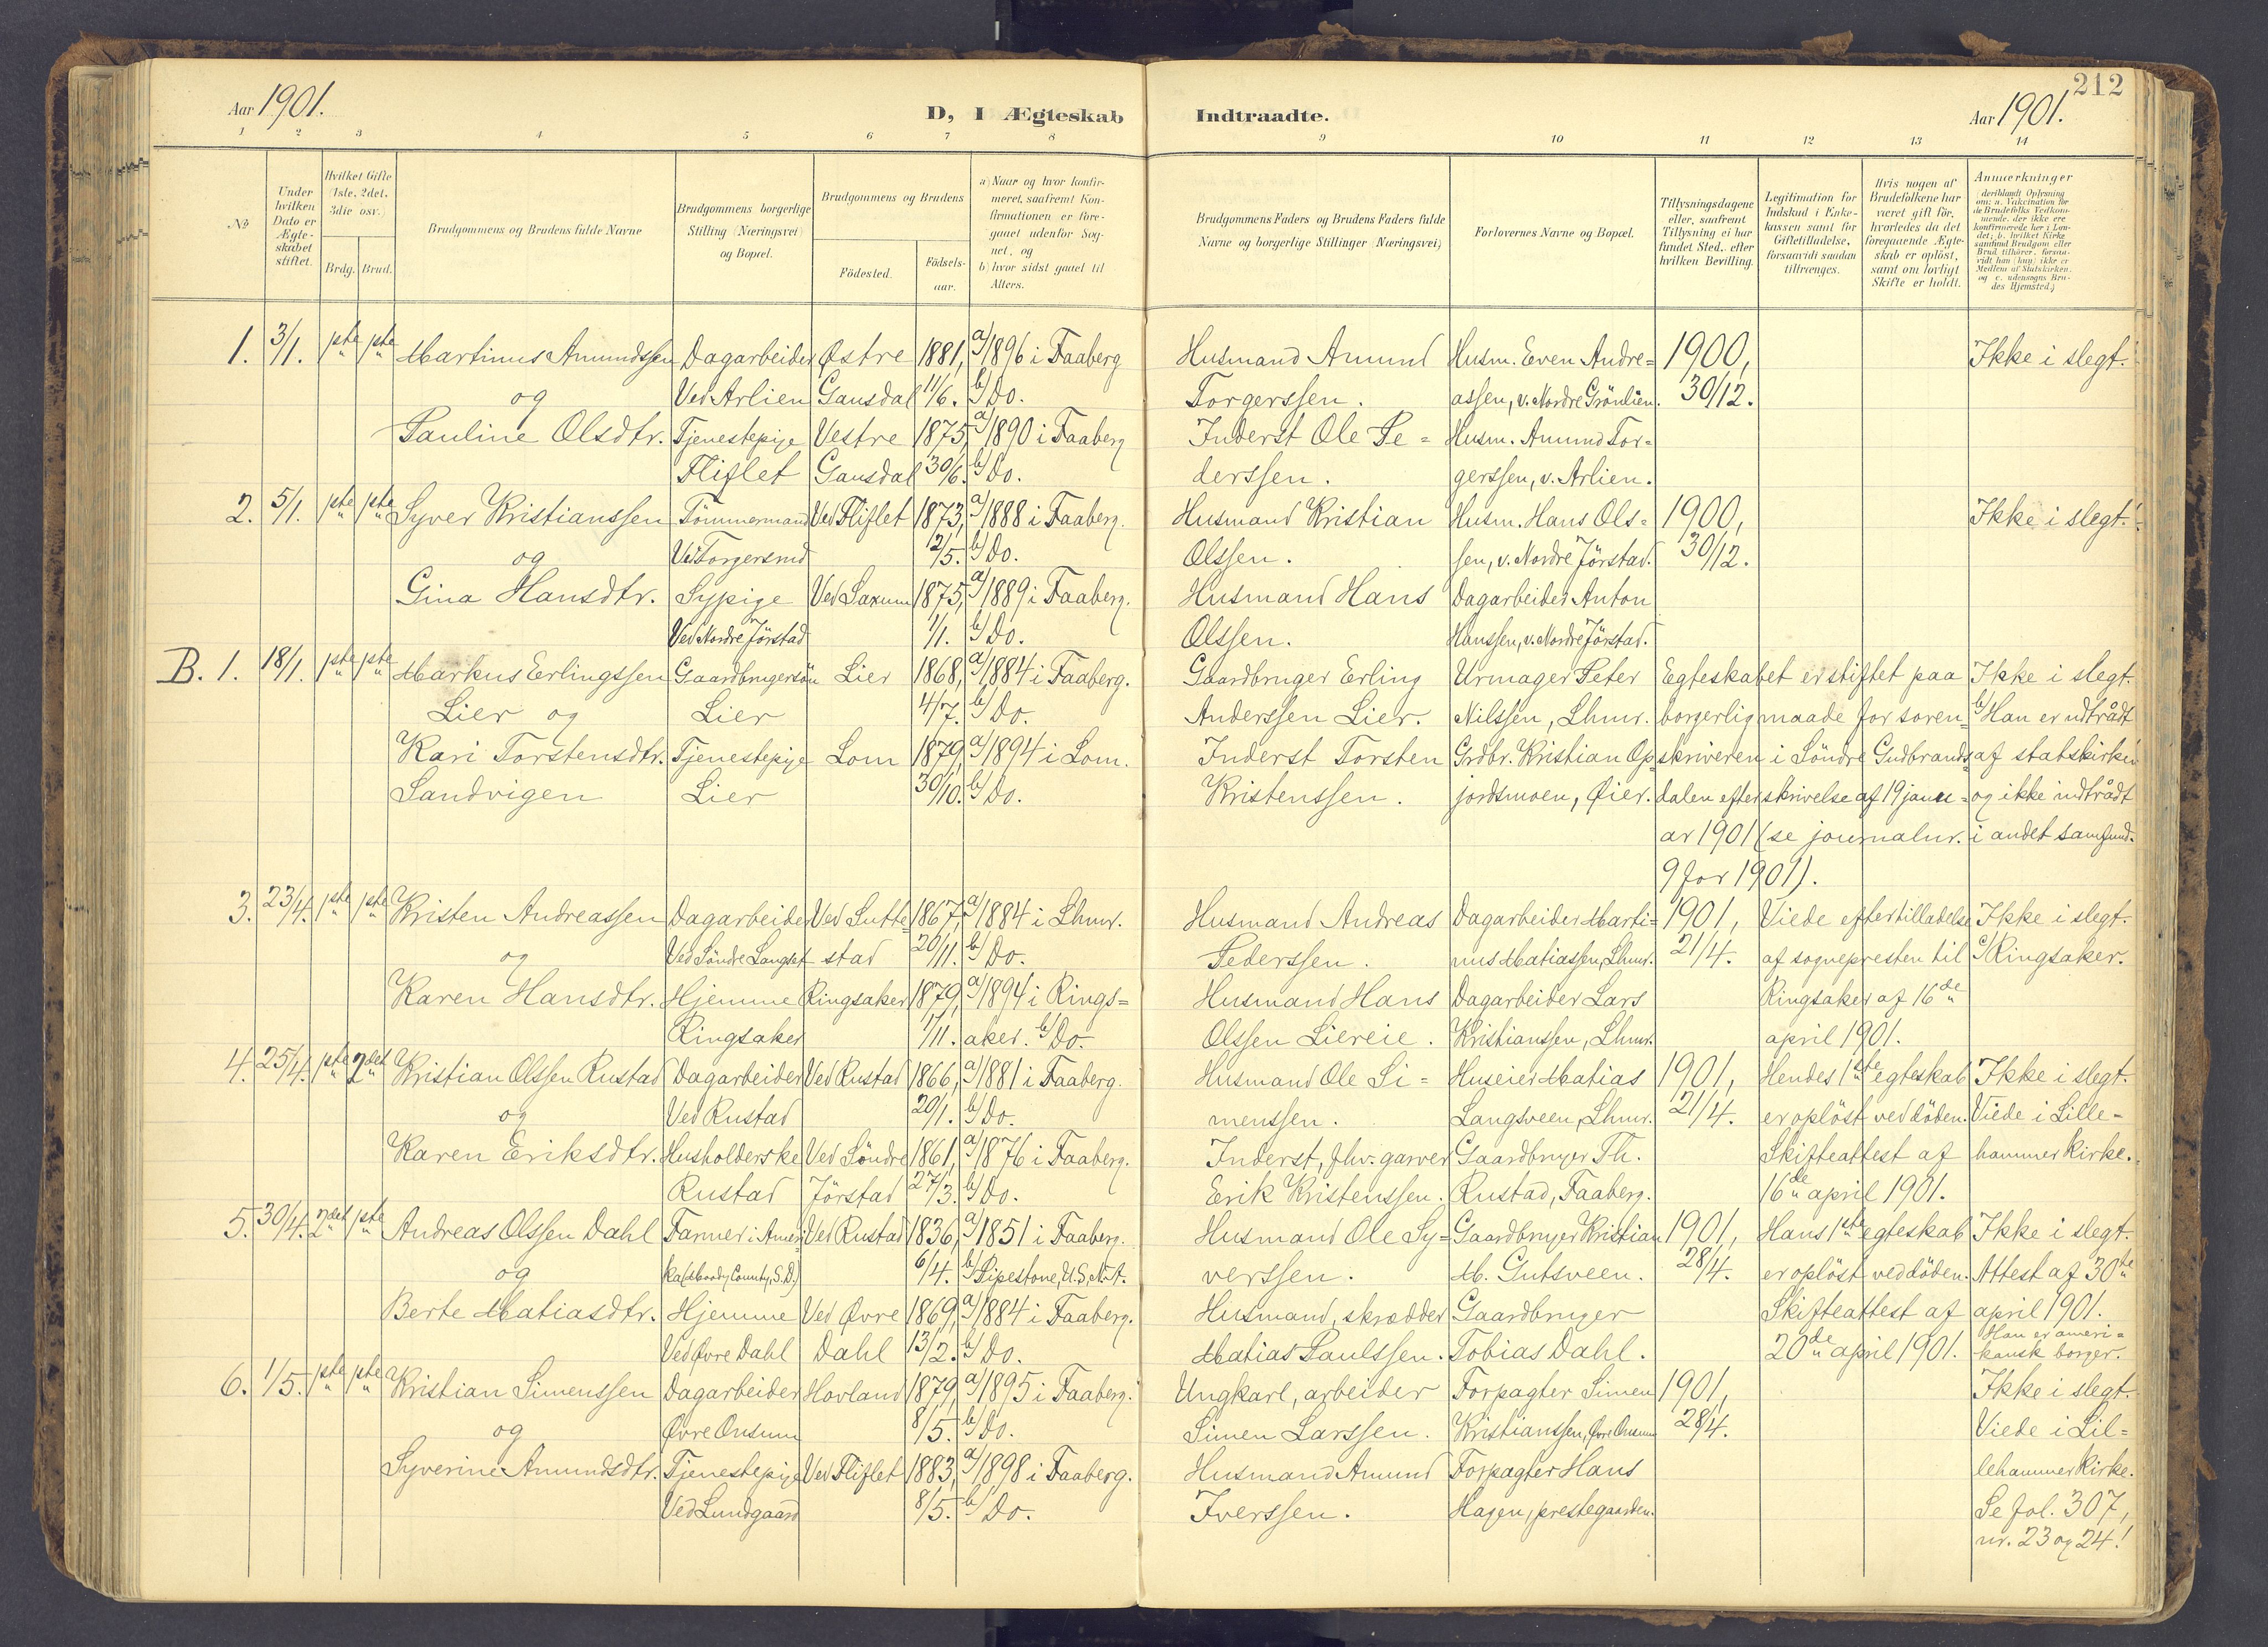 212
Aar 1901.
D, I Ægteskab Indtraadte.
Aar 1901.
1 2 3 4 5 6 7 8 9 10 11 12 13 14
No
Under hvilken Dato er Ægteskabet stiftet.
Hvilket Gifte (1ste, 2det, 3die osv.)
Brdg. Brud.
Brudgommens og Brudens fulde Navne
Brudgommens borgerlige Stilling (Næringsvei) og Bopæl.
Brudgommens og Brudens
Födested.
Födsels-aar.
a) Naar og hvor konfirmeret, saafremt Konfirmationen er foregaaet udenfor Sognet, og
b) hvor sidst gaaet til Alters.
Brudgommens Faders og Brudens Faders fulde Navne og borgerlige Stillinger (Næringsvei)
Forlovernes Navne og Bopæl.
Tillysningsdagene eller, saafremt Tillysning ei har fundet Sted, efter hvilken Bevilling.
Legitimation for Indskud i Enkekassen samt for Giftetilladelse, forsaavidt saadan tiltrænges.
Hvis nogen af Brudefolkene har været gift för, hvorledes da det foregaaende Ægteskab er oplöst, samt om lovligt Skifte er holdt.
Anmærkninger
(deriblandt Oplysning om: a. Vakcination for de Brudefolks Vedkommende, der ikke ere konfirmerede her i Landet; b. hvilket Kirkesamfund Brudgom eller Brud tilhörer, forsaavidt han (hun) ikke er Medlem af Statskirken, og c. udensogns Brudes Hjemsted.)
1. 3/1. 1ste 1ste Martinus Amundssen Dagarbeider Østre 1881, a/1896 i Faaberg Husmand Amund Husm. Even Andre= 1900, Ikke i slegt.
og Ved Arlien Gausdal 11/6. b/ Do. Torgerssen. assen, v. Nordre Grönlien. 30/12.
Pauline Olsdtr. Tjenestepige Vestre 1875, a/1890 i Faaberg Inderst Ole Pe= Husm. Amund Tor=
Fliflet Gausdal 30/6. b/ Do. derssen. gerssen, v. Arlien.
2. 5/1. 1ste 1ste Syver Kristianssen Tömmermand Ved Fliflet 1873, a/1888 i Faaberg. Husmand Kristian Husm. Hans Ols= 1900, Ikke i slegt.
og Ved Torgersrud 12/5. b/ Do. Olssen. sen, v. Nordre Jörstad. 30/12.
Gina Hansdtr. Sypige Ved Saxum 1875, a/1889 i Faaberg. Husmand Hans Dagarbeider Anton
Ved Nordre Jörstad 1/1. b/ Do. Olssen. Hanssen, v. Nordre Jörstad.
B. 1. 18/1. 1ste 1ste Markus Erlingssen Gaardbrugersön Lier 1868, a/1884 i Faaberg. Gaardbruger Erling Urmager Peter Egteskabet er stiftet paa Ikke i slegt.
Lier og Lier 4/7. b/ Do. Anderssen Lier. Nilssen, Lhmr. borgerlig maade for soren= b/ Han er udtrådt
Kari Torstensdtr. Tjenestepige Lom 1879, a/1894 i Lom. Inderst Torsten Grdbr. Kristian Op= skriveren i Söndre Gudbrands= af statskirken
Sandvigen Lier 30/10. b/ Do. Kristenssen. jordsmoen, Øier. dalen efter skrivelse af 19 janu= og ikke indtrådt
ar 1901 (se journalnr. i andet samfund.
9 for 1901).
3. 23/4. 1ste 1ste Kristen Andreassen Dagarbeider Ved Sutte= 1867, a/1884 i Lhmr. Husmand Andreas Dagarbeider Marti= 1901, Viede efter tilladelse Ikke i slegt.
og Ved Söndre Langset stad 20/11. b/ Do. Pederssen. nus Matiassen, Lhmr. 21/4. af sognepresten til c/ Ringsaker.
Karen Hansdtr. Hjemme Ringsaker 1879, a/1894 i Rings= Husmand Hans Dagarbeider Lars Ringsaker af 16de
Ringsaker 1/11. aker. b/ Do. Olssen Liereie. Kristianssen, Lhmr. april 1901.
4. 25/4. 1ste 2det Kristian Olssen Rustad Dagarbeider Ved Rustad 1866, a/1881 i Faaberg. Husmand Ole Si= Huseier Matias 1901, Hendes 1ste egteskab Ikke i slegt.
og Ved Rustad 20/1. b/ Do. menssen. Langsveen, Lhmr. 21/4. er oplöst ved döden. Viede i Lille=
Karen Eriksdtr. Husholderske Ved Söndre 1861, a/1876 i Faaberg. Inderst, fhv. garver Gaardbruger Th. Skifteattest af hammer kirke.
Rustad Jörstad 27/3. b/ Do. Erik Kristenssen. Rustad, Faaberg. 16de april 1901.
5. 30/4. 2det 1ste Andreas Olssen Dahl Farmer i Ameri= Ved Rustad 1836, a/1851 i Faaberg. Husmand Ole Sy= Gaardbruger Kristian 1901, Hans 1ste egteskab Ikke i slegt.
og ka (Moody County, S.D.) 6/4. b/ Pipestone, U.S.N.A. verssen. M. Gutsveen. 28/4. er oplöst ved döden. Attest af 30te
Berte Matiasdtr. Hjemme Ved Øvre 1869, a/1884 i Faaberg. Husmand, skrædder Gaardbruger Skifteattest af april 1901.
Ved Øvre Dahl Dahl 13/2. b/ Do. Matias Paulssen. Tobias Dahl. 20de april 1901. Han er ameri=
kansk borger.
6. 1/5. 1ste 1ste Kristian Simenssen Dagarbeider Hovland 1879, a/1895 i Faaberg. Ungkarl, arbeider Forpagter Simen 1901, Ikke i slegt.
og Øvre Onsum 8/5. b/ Do. Simen Larssen. Kristianssen, Øvre Onsum 28/4. Viede i Lil=
Syverine Amundsdtr. Tjenestepige Ved Fliflet 1883, a/1898 i Faaberg. Husmand Amund Forpagter Hans lehammer kirke.
Ved Lundgaard 8/5. b/ Do. Iverssen. Hagen, prestegaarden. Se fol. 307,
nr. 23 og 24!